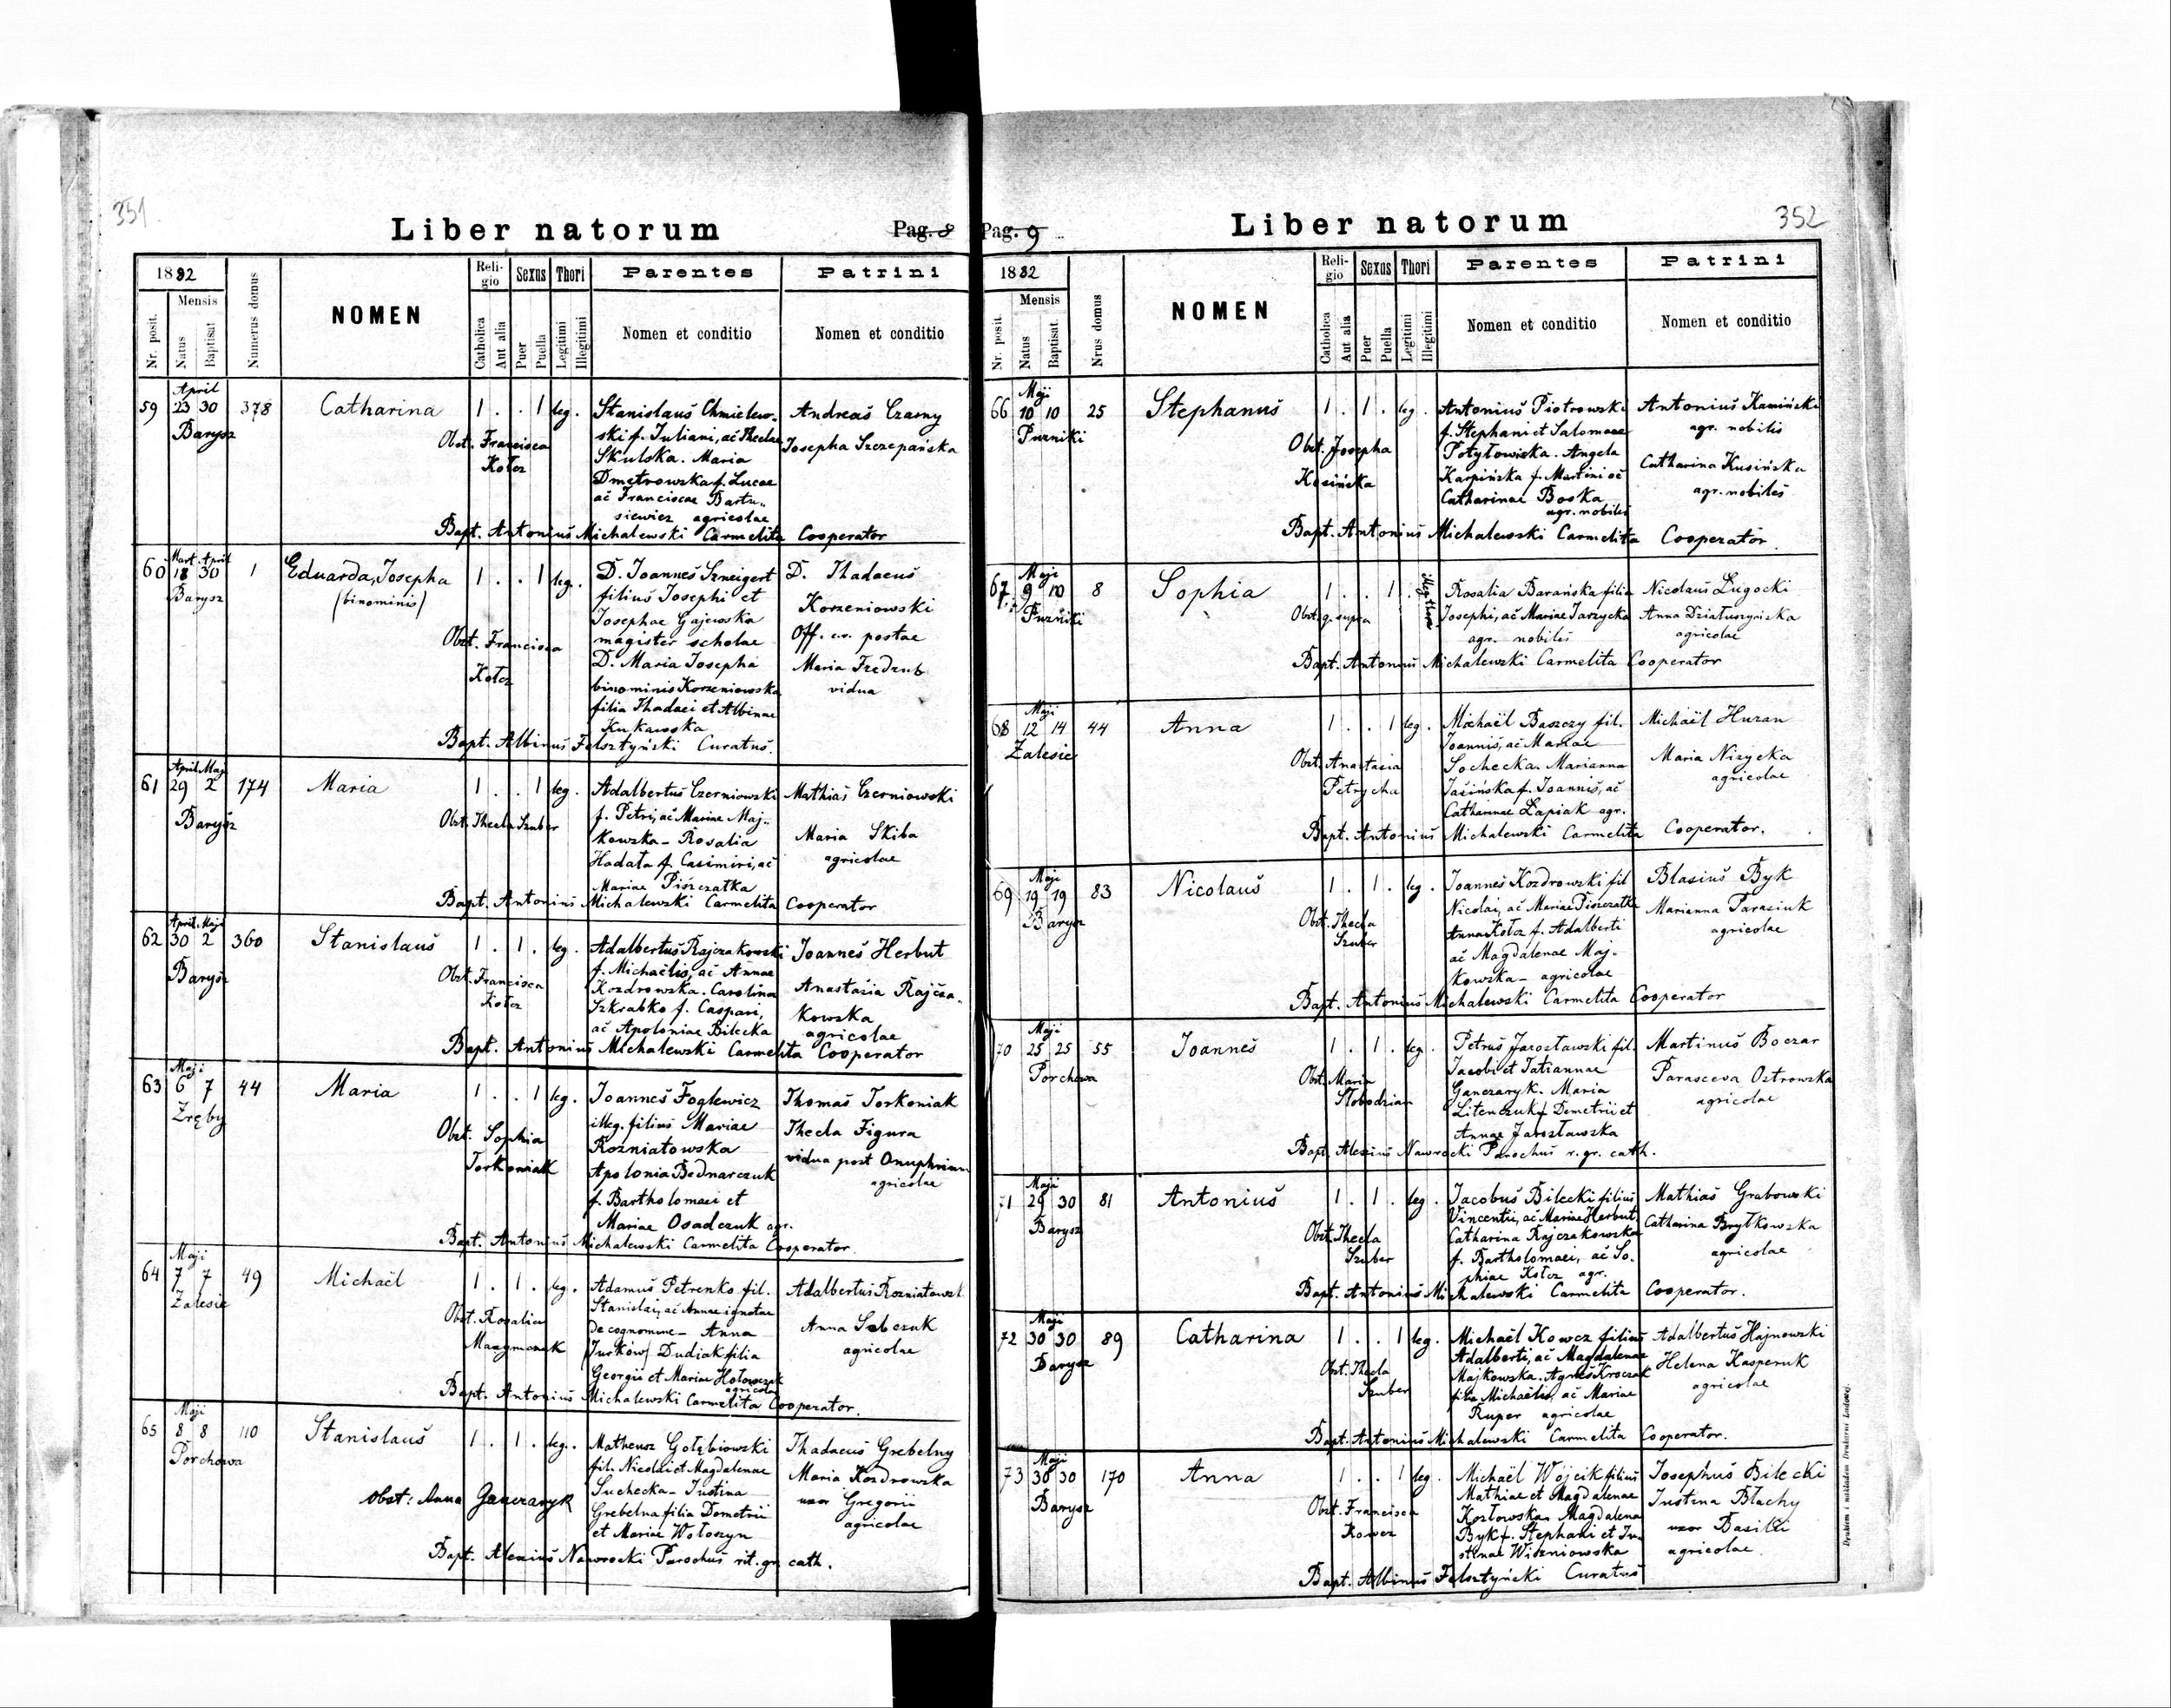 351
Liber natorum
Pag. 8
1882
Nr. posit.
Mensis
Natus
Baptisat
Numerus domus
NOMEN
Reli-
gio
Catholica
Aut alia
Sexus
Puer
Puella
Thori
Legitimi
Illegitimi
Parentes
Nomen et conditio
Patrini
Nomen et conditio
59
April
23 30
Barysz
378
Catharina
1 . . 1 leg.
Obst. Francisca
Kołcz
Stanislaus Chmielew-
ski f. Juliani, ac Theclae
Skulska. Maria
Dmetrowska f. Lucae
ac Franciscae Bartu-
siewicz agricolae
Andreas Czarny
Josepha Szczepańska
Bapt. Antonius Michalewski Carmelita Cooperator
60
Mart. April
18 30
Barysz
1
Eduarda, Josepha
(binominis)
1 . . 1 leg.
Obst. Francisca
Kołcz
D. Joannes Szneigert
filius Josephi et
Josephae Gajewska
magister scholae
D. Maria Josepha
binominis Korzeniowska
filia Thadaei et Albinae
Kukawska
D. Thadaeus
Korzeniowski
Off. c.r. postae
Maria Fredrub
vidua
Bapt. Albinus Felsztyński Curatus.
61
April Maj
29 2
Barysz
174
Maria
1 . . 1 leg.
Obst. Thecla Szuber
Adalbertus Czerniowski
f. Petri, ac Mariae Maj-
kowska - Rosalia
Hadata f. Casimiri, ac
Mariae Piszczatka
Mathias Czerniowski
Maria Skiba
agricolae
Bapt. Antonius Michalewski Carmelita Cooperator
62
April. Maji
30 2
Barysz
360
Stanislaus
1 . 1 . leg.
Obst. Francisca
Kołcz
Adalbertus Rajczakowski
f. Michaëlis, ac Annae
Kozdrowska. Carolina
Szkrabko f. Caspari,
ac Apoloniae Bilecka
Joannes Herbut
Anastasia Rajcza-
kowska
agricolae
Bapt. Antonius Michalewski Carmelita Cooperator
63
Maji
6 7
Zręby
44
Maria
1 . . 1 leg.
Obst. Sophia
Torkoniak
Joannes Foglewicz
illeg. filius Mariae
Rozniatowska
Apolonia Bednarczuk
f. Bartholomaei et
Mariae Osadczuk agr.
Thomas Torkoniak
Thecla Figura
vidua post Onuphrium
agricolae
Bapt. Antonius Michalewski Carmelita Cooperator.
64
Maji
7 7
Zalesie
49
Michaël
1 . 1 . leg.
Obst. Rosalia
Adamus Petrenko fil.
Stanislai, ac Annae ignotae
de cognomine - Anna
(Jurków) Dudiak filia
Georgii et Mariae
agricolae
Adalbertus Rozniatowski
Anna
agricolae
Bapt. Antonius Michalewski Carmelita Cooperator.
65
Maji
8 8
Porchowa
110
Stanislaus
1 . 1 . leg.
Obst: Anna Ganczaryk
Matheusz Gołębiowski
fil. Nicolai et Magdalenae
Suchecka - Justina
Grebelna filia Demetrii
et Mariae Wołoszyn
Thadaeus Grebelny
Maria Kozdrowska
uxor Gregorii
agricolae
Bapt. Alexius Nawrocki Parochus rit. gr. cath.
Pag. 9
Liber natorum
352
1882
Nr. posit.
Mensis
Natus
Baptisat.
Nrus domus
NOMEN
Reli-
gio
Catholica
Aut alia
Sexus
Puer
Puella
Thori
Legitimi
Illegitimi
Parentes
Nomen et conditio
Patrini
Nomen et conditio
66
Maji
10 10
Puzniki
25
Stephanus
1 . 1 . leg.
Obst. Josepha
Kosińska
Antonius Piotrowski
f. Stephani et Salomeae
Potyłowiska. Angela
Karpińska f. Martini ac
Catharinae Boska
agr. nobiles
Antonius Kamiński
agr. nobilis
Catharina Kusińska
agr. nobiles
Bapt. Antonius Michalewski Carmelita Cooperator.
67
Maji
9 10
Puzniki
8
Sophia
1 . . 1 . Illegitimi
Obst. q. supra
Rosalia Barańska filia
Josephi, ac Mariae Jarzycka
agr. nobiles
Nicolaus Ługocki
Anna Działuszyńska
agricolae
Bapt. Antonius Michalewski Carmelita Cooperator
68
Maji
12 14
Zalesie
44
Anna
1 . . 1 leg.
Obst. Anastasia
Petrycha
Michaël Baszczy fil.
Joannis, ac Mariae
Sochecka. Marianna
Jasińska f. Joannis, ac
Catharinae Łapiak agr.
Michaël Huzan
Maria Nizycka
agricolae
Bapt. Antonius Michalewski Carmelita Cooperator.
69
Maji
19 19
Barysz
83
Nicolaus
1 . 1 . leg.
Obst. Thecla
Szuber
Joannes Kozdrowski fil
Nicolai, ac Mariae Piszczatka
Anna Kołcz f. Adalberti
ac Magdalenae Maj-
kowska - agricolae
Blasius Byk
Marianna Parasiuk
agricolae
Bapt. Antonius Michalewski Carmelita Cooperator
70
Maji
25 25
Porchowa
55
Joannes
1 . 1 . leg.
Obst. Maria
Słobodzian
Petrus Jarosławski fil.
Jacobi et Tatiannae
Ganczaryk. Maria
Litenczuk f. Demetrii et
Annae Jarosławska
Martinus Boczar
Parasceva Ostrowska
agricolae
Bapt. Alexius Nawrocki Parochus r. gr. cath.
71
Maji
29 30
Barysz
81
Antonius
1 . 1 . leg.
Obst. Thecla
Szuber
Jacobus Bilecki filius
Vincentii, ac Mariae Herbut.
Catharina Rajczakowska
f. Bartholomaei, ac So-
phiae Kołcz agr.
Mathias Grabowski
Catharina Brytkowska
agricolae
Bapt. Antonius Michalewski Carmelita Cooperator.
72
Maji
30 30
Barysz
89
Catharina
1 . . 1 leg.
Obst. Thecla
Szuber
Michaël Kowcz filius
Adalberti, ac Magdalenae
Majkowska. Agnes Kroczak
filia Michaëlis, ac Mariae
Ruper agricolae
Adalbertus Hajnowski
Helena Kasperuk
agricolae
Bapt. Antonius Michalewski Carmelita Cooperator.
73
Maji
30 30
Barysz
170
Anna
1 . . 1 leg.
Obst. Francisca
Kowcz
Michaël Wójcik filius
Mathiae et Magdalenae
Kozłowska. Magdalena
Byk f. Stephani et Ju-
stinae Wiszniowska
Josephus Bilecki
Justina Błachy
uxor Basilii
agricolae
Bapt. Albinus Felsztyński Curatus
Drukiem i nakładem Drukarni Ludowej.